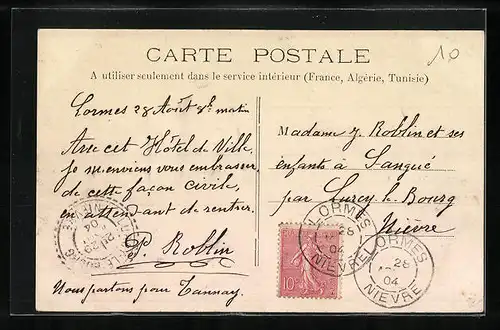 CARTE POSTALE
A utiliser seulement dans le service intérieur (France, Algérie, Tunisie)
10
Lormes 28 Août 8h matin
Avec cet Hôtel de Ville,
je m'enviens vous embrasser
de cette façon civile,
en attendant de rentrer.
P. Roblin
Nous partons pour Tannay.
Madame J. Roblin et ses
enfants à Sangué
par Lurcy le Bourg
Nièvre
LORMES
28
04
NIEVRE
LORMES
28
04
NIEVRE
10